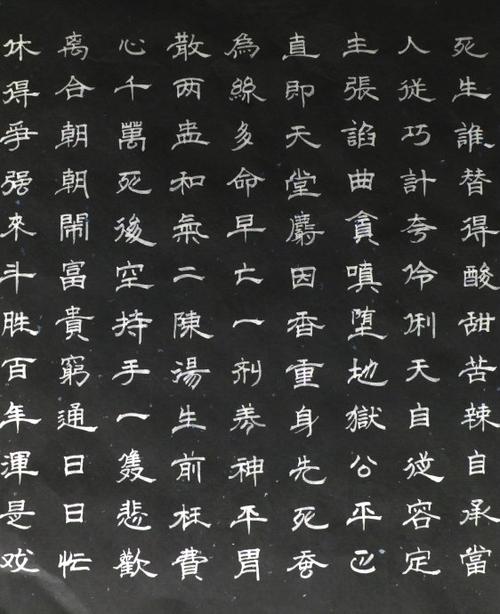 死生誰替得酸甜苦辣自承當
人從巧計夸伶俐天自從容定
主張諂曲貪嗔堕地獄公平正
直即天堂麝因香重身先死蚕
為絲多命早亡一剂养神平胃
散两盅和氣二陳湯生前枉費
心千萬死後空持手一雙悲歡
离合朝朝鬧富貴窮通日日忙
休得爭强来斗胜百年渾是戏